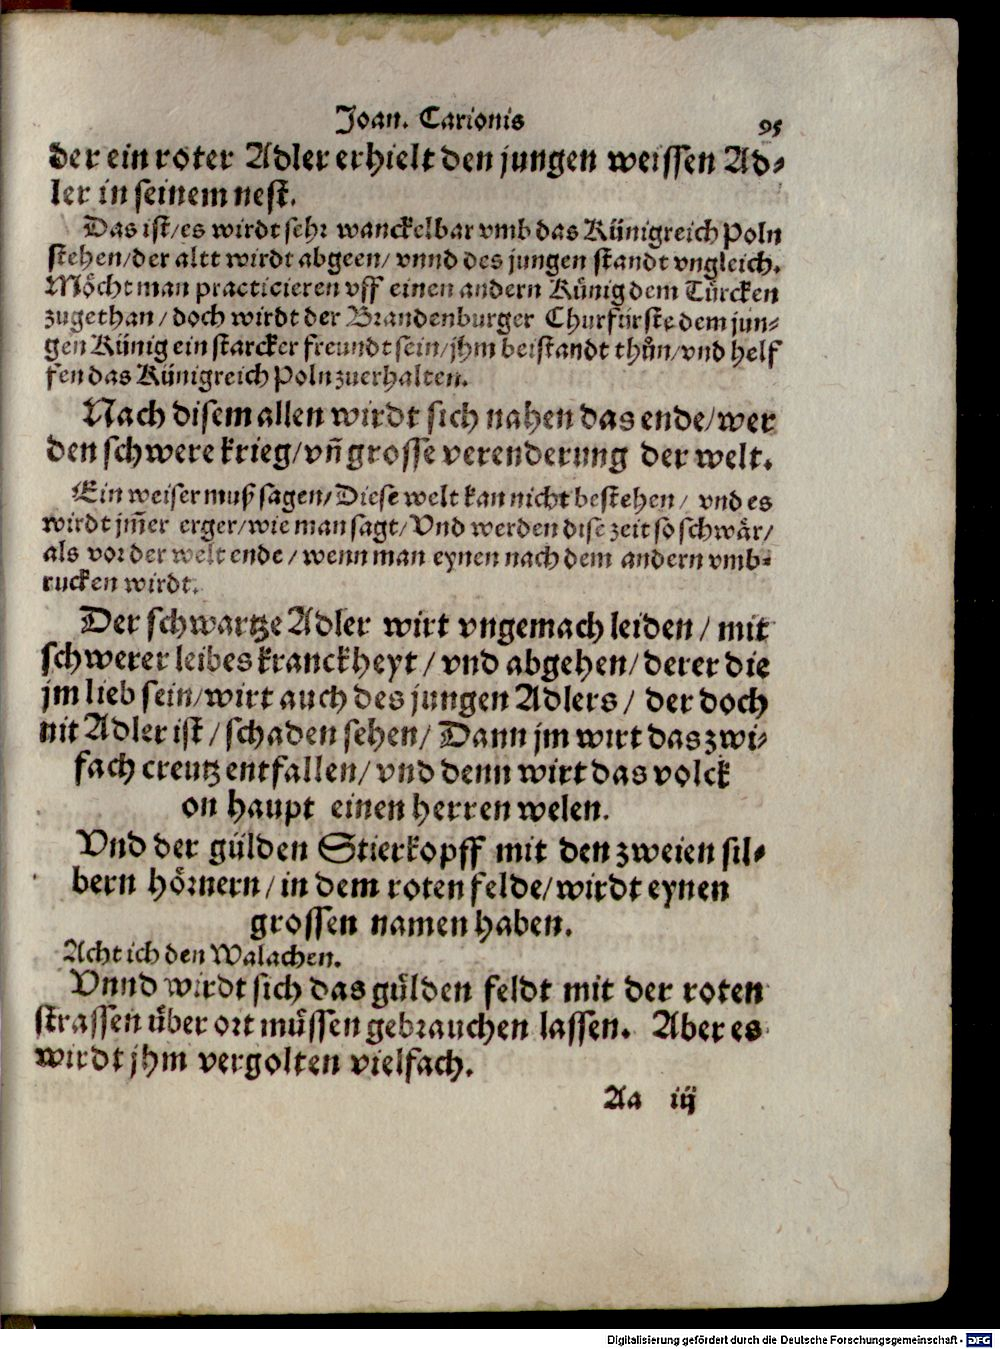 Joan. Carionis 95
der ein roter Adler erhielt den jungen weissen Ad-
ler in seinem nest.
Das ist/es wirdt sehr wanckelbar vmb das Künigreich Poln
stehen/der altt wirdt abgeen/ vnnd des jungen standt vngleich.
Möcht man practicieren vff einen andern Künig dem Türcken
zugethan/ doch wirdt der Brandenburger Churfürste dem jun-
gen Künig ein starcker freundt sein/jhm beistandt thůn/vnd helf
fen das Künigreich Poln zuerhalten.
Nach disem allen wirdt sich nahen das ende/wer
den schwere krieg/vñ grosse verenderung der welt.
Ein weiser muß sagen/Diese welt kan nicht bestehen/ vnd es
wirdt jm̃er erger/wie man sagt/Vnd werden dise zeit so schwär/
als vor der welt ende/wenn man eynen nach dem andern vmb-
rucken wirdt.
Der schwartze Adler wirt vngemach leiden/ mit
schwerer leibes kranckheyt/vnd abgehen/derer die
jm lieb sein/wirt auch des jungen Adlers/ der doch
nit Adler ist/schaden sehen/ Dann jm wirt das zwi-
fach creutz entfallen/vnd denn wirt das volck
on haupt einen herren welen.
Vnd der gülden Stierkopff mit den zweien sil-
bern hörnern/in dem roten felde/wirdt eynen
grossen namen haben.
Acht ich den Walachen.
Vnnd wirdt sich das gülden feldt mit der roten
strassen über ort müssen gebrauchen lassen. Aber es
wirdt jhm vergolten vielfach.
Aa iij
Digitalisierung gefördert durch die Deutsche Forschungsgemeinschaft - DFG